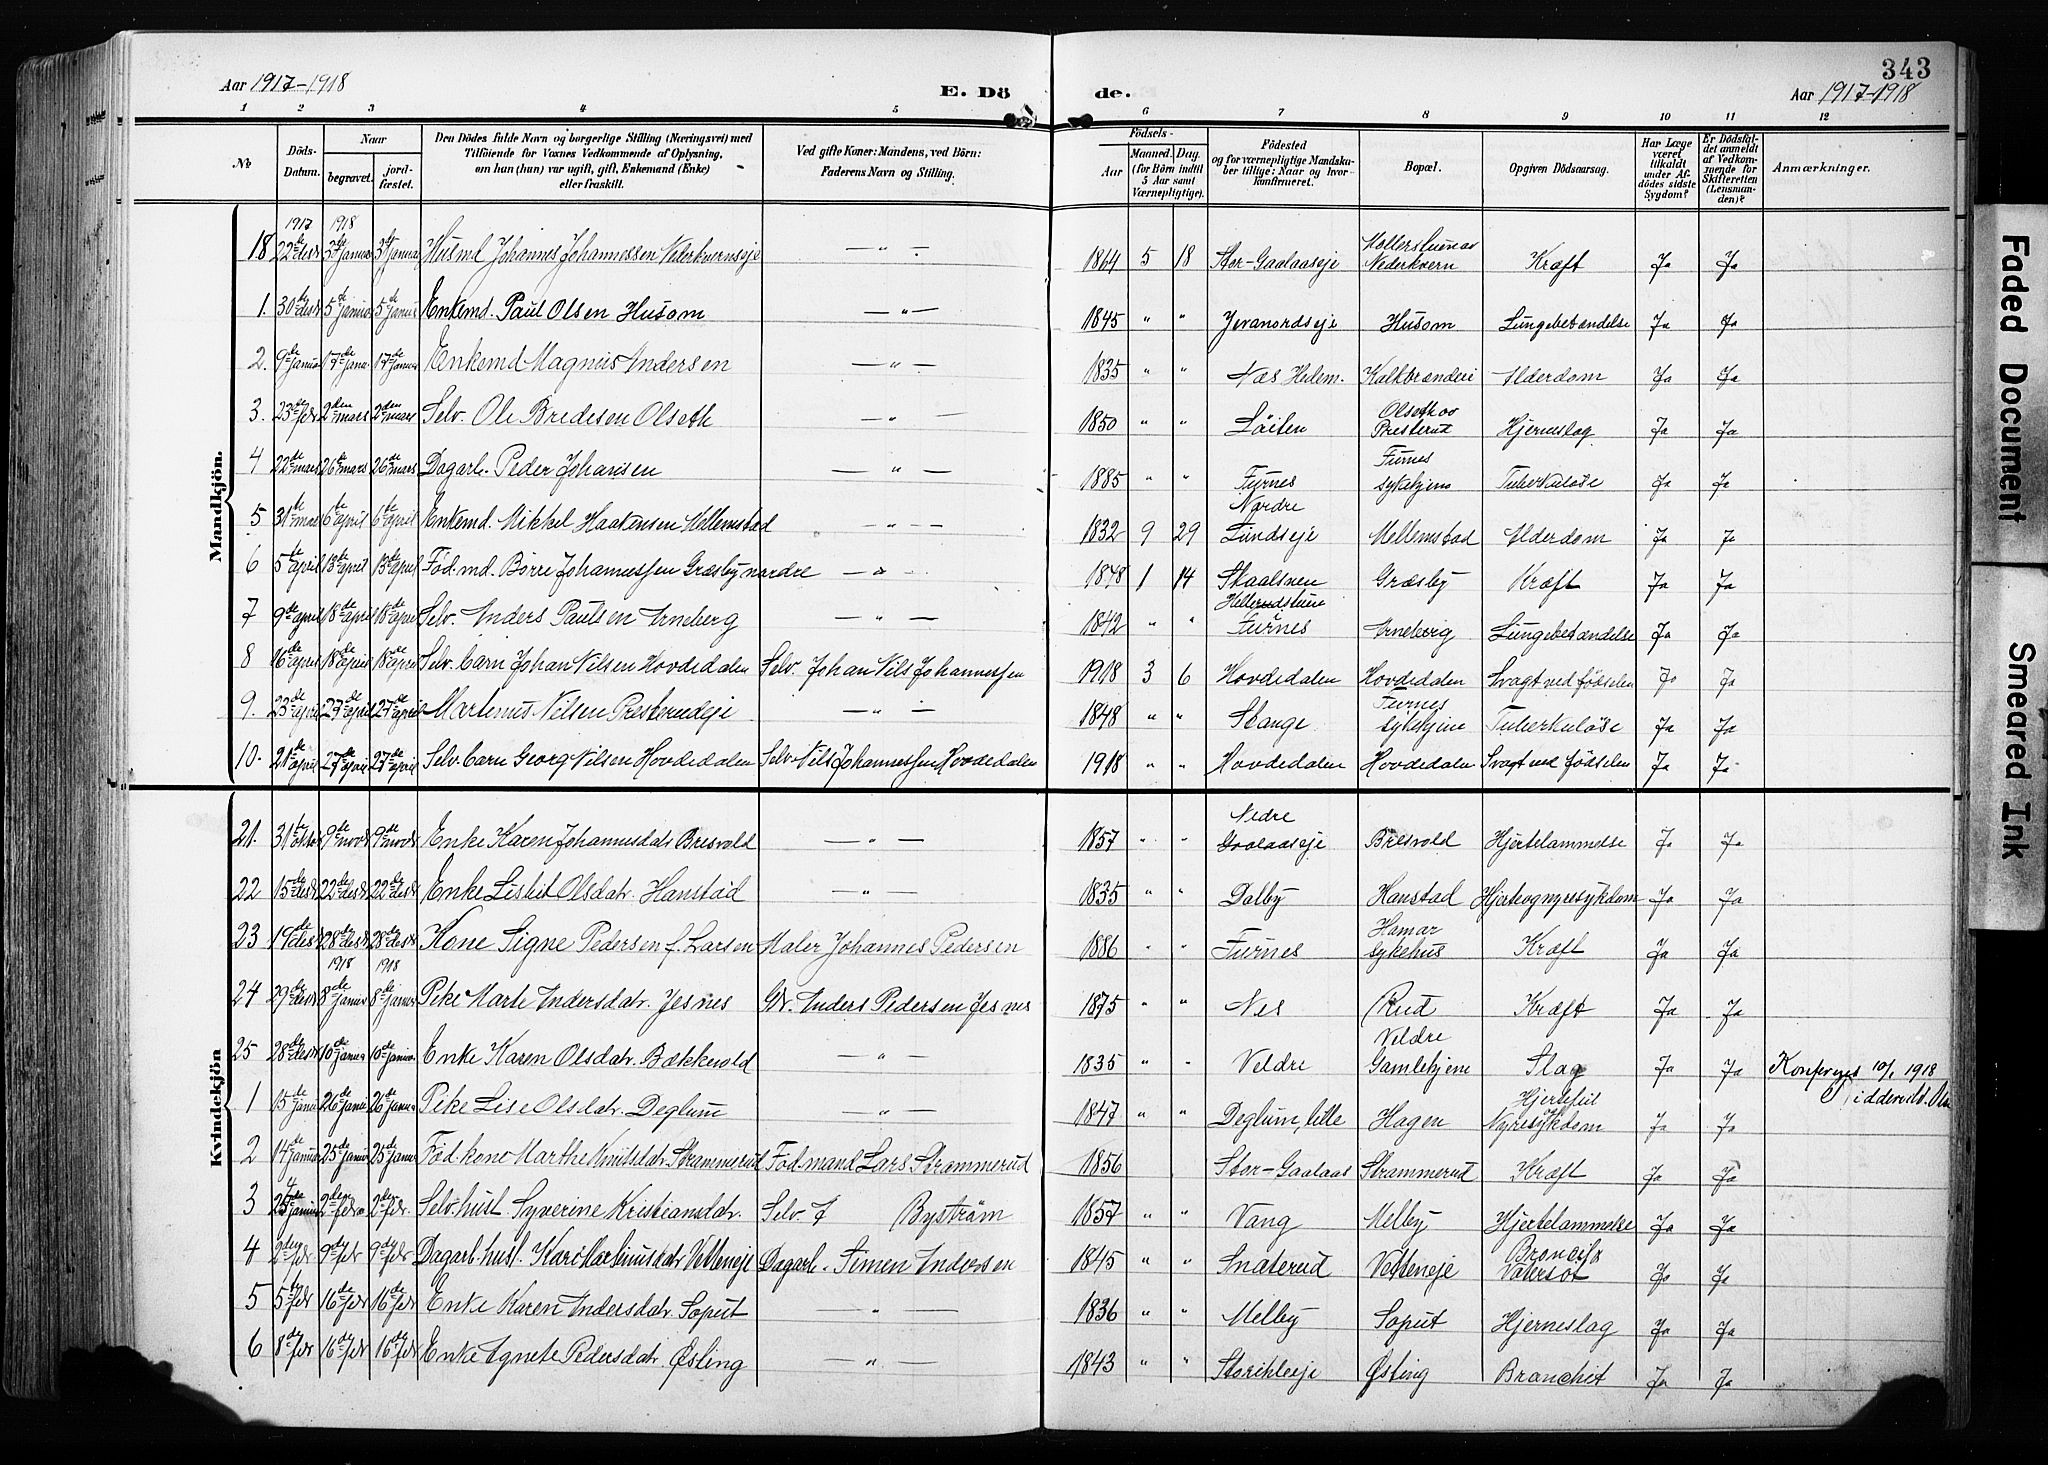 343
Aar 1917-1918 E. Dö de. Aar 1917-1918
1 2 3 4 5 6 7 8 9 10 11 12
No Döds-Datum. Naar begravet. jord-fæstet. Den Dödes fulde Navn og borgerlige Stilling (Næringsvei) med Tilföiende for Voxnes Vedkommende af Oplysning, om han (hun) var ugift, gift, Enkemand (Enke) eller fraskilt. Ved gifte Koner: Mandens, ved Börn: Faderens Navn og Stilling. Födsels- Aar Maaned. Dag. (for Börn indtil 5 Aar samt Værnepligtige). Födested og for værnepligtige Mandskaber tillige: Naar og hvor konfirmeret. Bopæl. Opgiven Dödsaarsag. Har Læge været tilkaldt under Afdödes sidste Sygdom? Er Dödsfaldet anmeldt af Vedkommende for Skifteretten (Lensmanden)? Anmærkninger.
Mandkjön.
1917 1918
18 22de desr 3de januar 3de januar Husmd Johannes Johannessen Nederkvernseje — " — 1864 5 18 Stor-Gaalaaseje Møllerstuen av Nederkvern Kræft Ja Ja
1. 30te desr 5de januar 5de januar Enkemd. Paul Olsen Husom — " — 1845 " " Jevanordseje Husom Lungebetændelse Ja Ja
2. 9de januar 17de januar 17de januar Enkemd Magnus Andersen — " — 1835 " " Næs Hedem. Kalkbrænderi Alderdom Ja Ja
3. 23de febr 2den mars 2den mars Selv. Ole Bredesen Olseth — " — 1850 " " Löiten Olseth av Presterud Hjerneslag Ja Ja
4 22de mars 26de mars 26de mars Dagarb. Peder Johansen — " — 1885 " " Furnes Furnes sykehjem Tuberkuløse Ja Ja
5 31te mars 6te april 6te april Enkemd. Mikkel Haakensen Mellemstad — " — 1832 9 29 Nordre Lundseje Mellemstad Alderdom Ja Ja
6 5te april 13de april 13de april Föd.md. Börre Johannessen Græsby nordre — " — 1848 1 14 Skaalsnen Græsby Kræft Ja Ja
7 9de april 18de april 18de april Selv. Anders Paulsen Arneberg — " — 1842 " " Hellerudstuen Furnes Arneberg Lungebetændelse Ja Ja
8 16de april 18de april 18de april Selv. barn Johan Nilsen Hovdedalen Selv. Johan Nils Johannessen 1918 3 6 Hovdedalen Hovdedalen Svagt ved födselen Ja Ja
9. 23de april 27de april 27de april Martinus Nilsen Presterudeje — " — 1848 " " Stange Furnes sykehjem Tuberkuløse Ja Ja
10. 21de april 27de april 27de april Selv. barn Georg Nilsen Hovdedalen Selv. Nils Johannessen Hovdedalen 1918 " " Hovdedalen Hovdedalen Svagt ved födselen Ja Ja
Kvindekjön
21. 31te oktbr 9de novbr 9de novbr Enke Karen Johannesdatr Bresvold — " — 1857 " " Nedre Gaalaaseje Bresvold Hjertelammelse Ja Ja
22 15de desbr 22de desbr 22de desbr Enke Lisbet Olsdatr. Hanstad — " — 1835 " " Dalby Hanstad Hjerteognyresykdom Ja Ja
23 19de desbr 28de desbr 28de desbr Kone Signe Pedersen f. Larsen Maler Johannes Pedersen 1886 " " Furnes Hamar sykehus Kræft Ja Ja
1918 1918
24 29de desbr 8de januar 8de januar Pike Marte Andersdatr. Jesnes Gbr. Anders Pedersen Jesnes 1875 " " Nes Rud Kræft Ja Ja
25 28de desbr 10de januar 10de januar Enke Karen Olsdatr. Bækkevold — " — 1835 " " Veldre Veldre Gamlehjem Slag Ja Ja Konfereres 10/1 1918
1 15de januar 26de januar 26de januar Pike Lise Olsdatr. Deglum — " — 1847 " " Deglum, lille Hagen Hjertefeil Nyresykdom Ja Ja
2 14de januar 25de januar 25de januar Föd.kone Marthe Knutsdatr Strammerud Föd.mand Lars Strammerud 1856 Stor-Gaalaas Strammerud Kræft Ja Ja
3 januar 2den febr 2den febr. Selv. hust Syverine Kristiansdatr. Selv. J Byström 1857 " " Vang Melby Hjertelammelse Ja Ja
4 2den febr 9de febr 9de febr Dagarb. hust. Kari Martinusdatr Vetteneje Dagarb. Simen Andersen 1845 " " Snaterud Vetteneje Ja Ja
5 5te febr 16de febr 16de febr Enke Karen Andersdatr. Soput — " — 1836 " " Melby Soput Hjerneslag Ja Ja
6 8de febr 16de febr 16de febr Enke Agnete Pedersdatr. Østing — " — 1843 " " Storihleeje Østing Bronchit Ja Ja
Faded Document
Smeared Ink